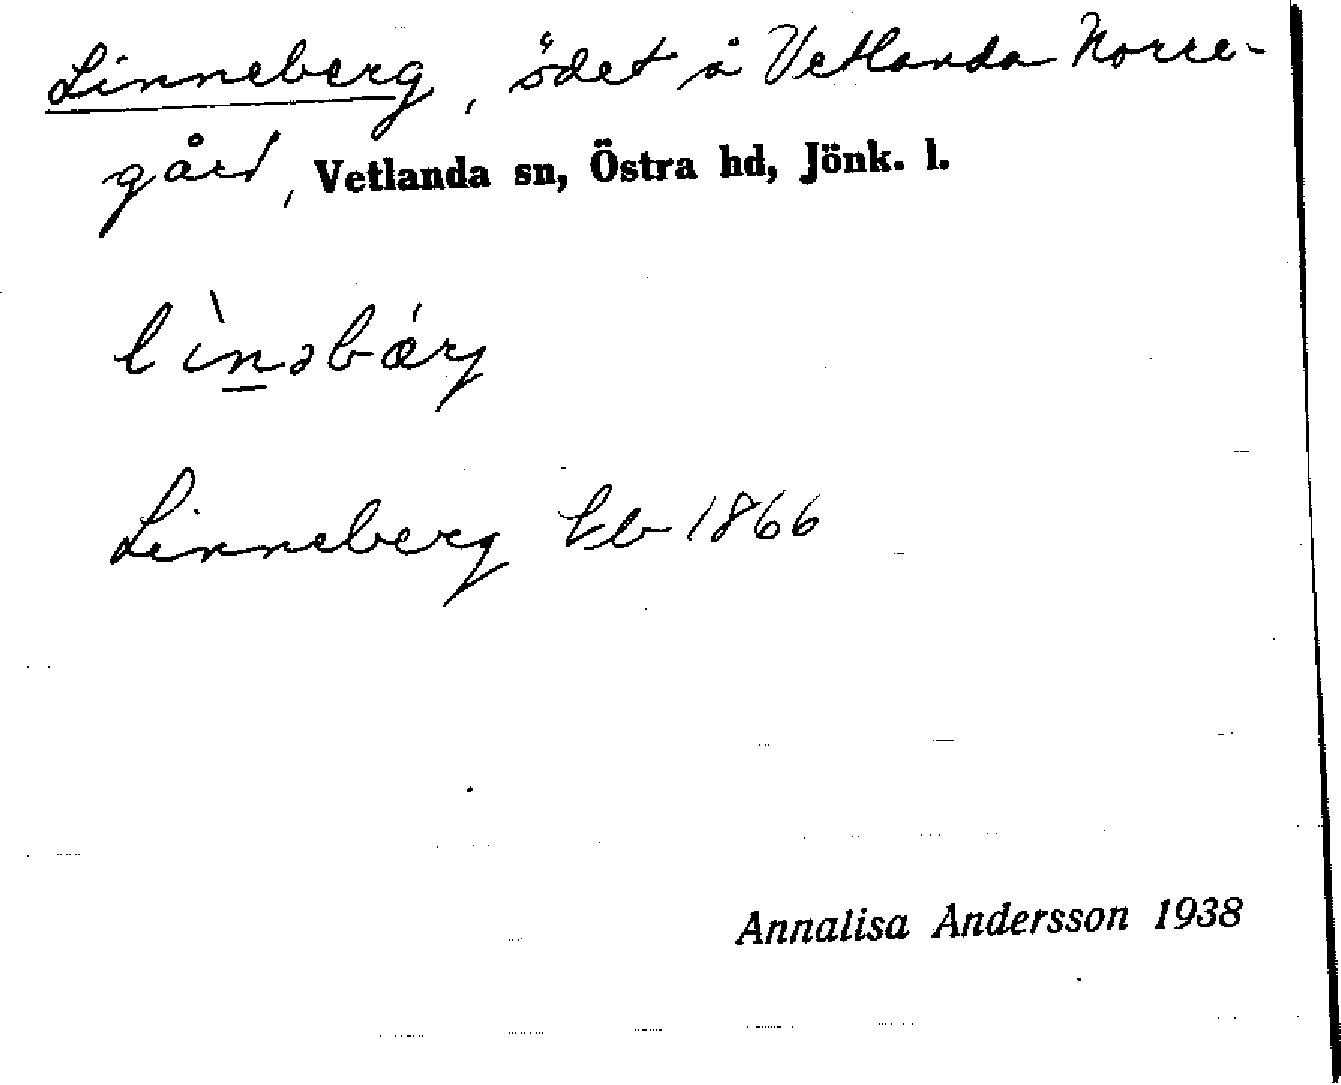 Linneberg, ödet å Vetlanda Norre-
gård, Vetlanda sn, Östra hd, Jönk. l.
lìnəbǽrj
Linneberg Lb 1866
Annalisa Andersson 1938